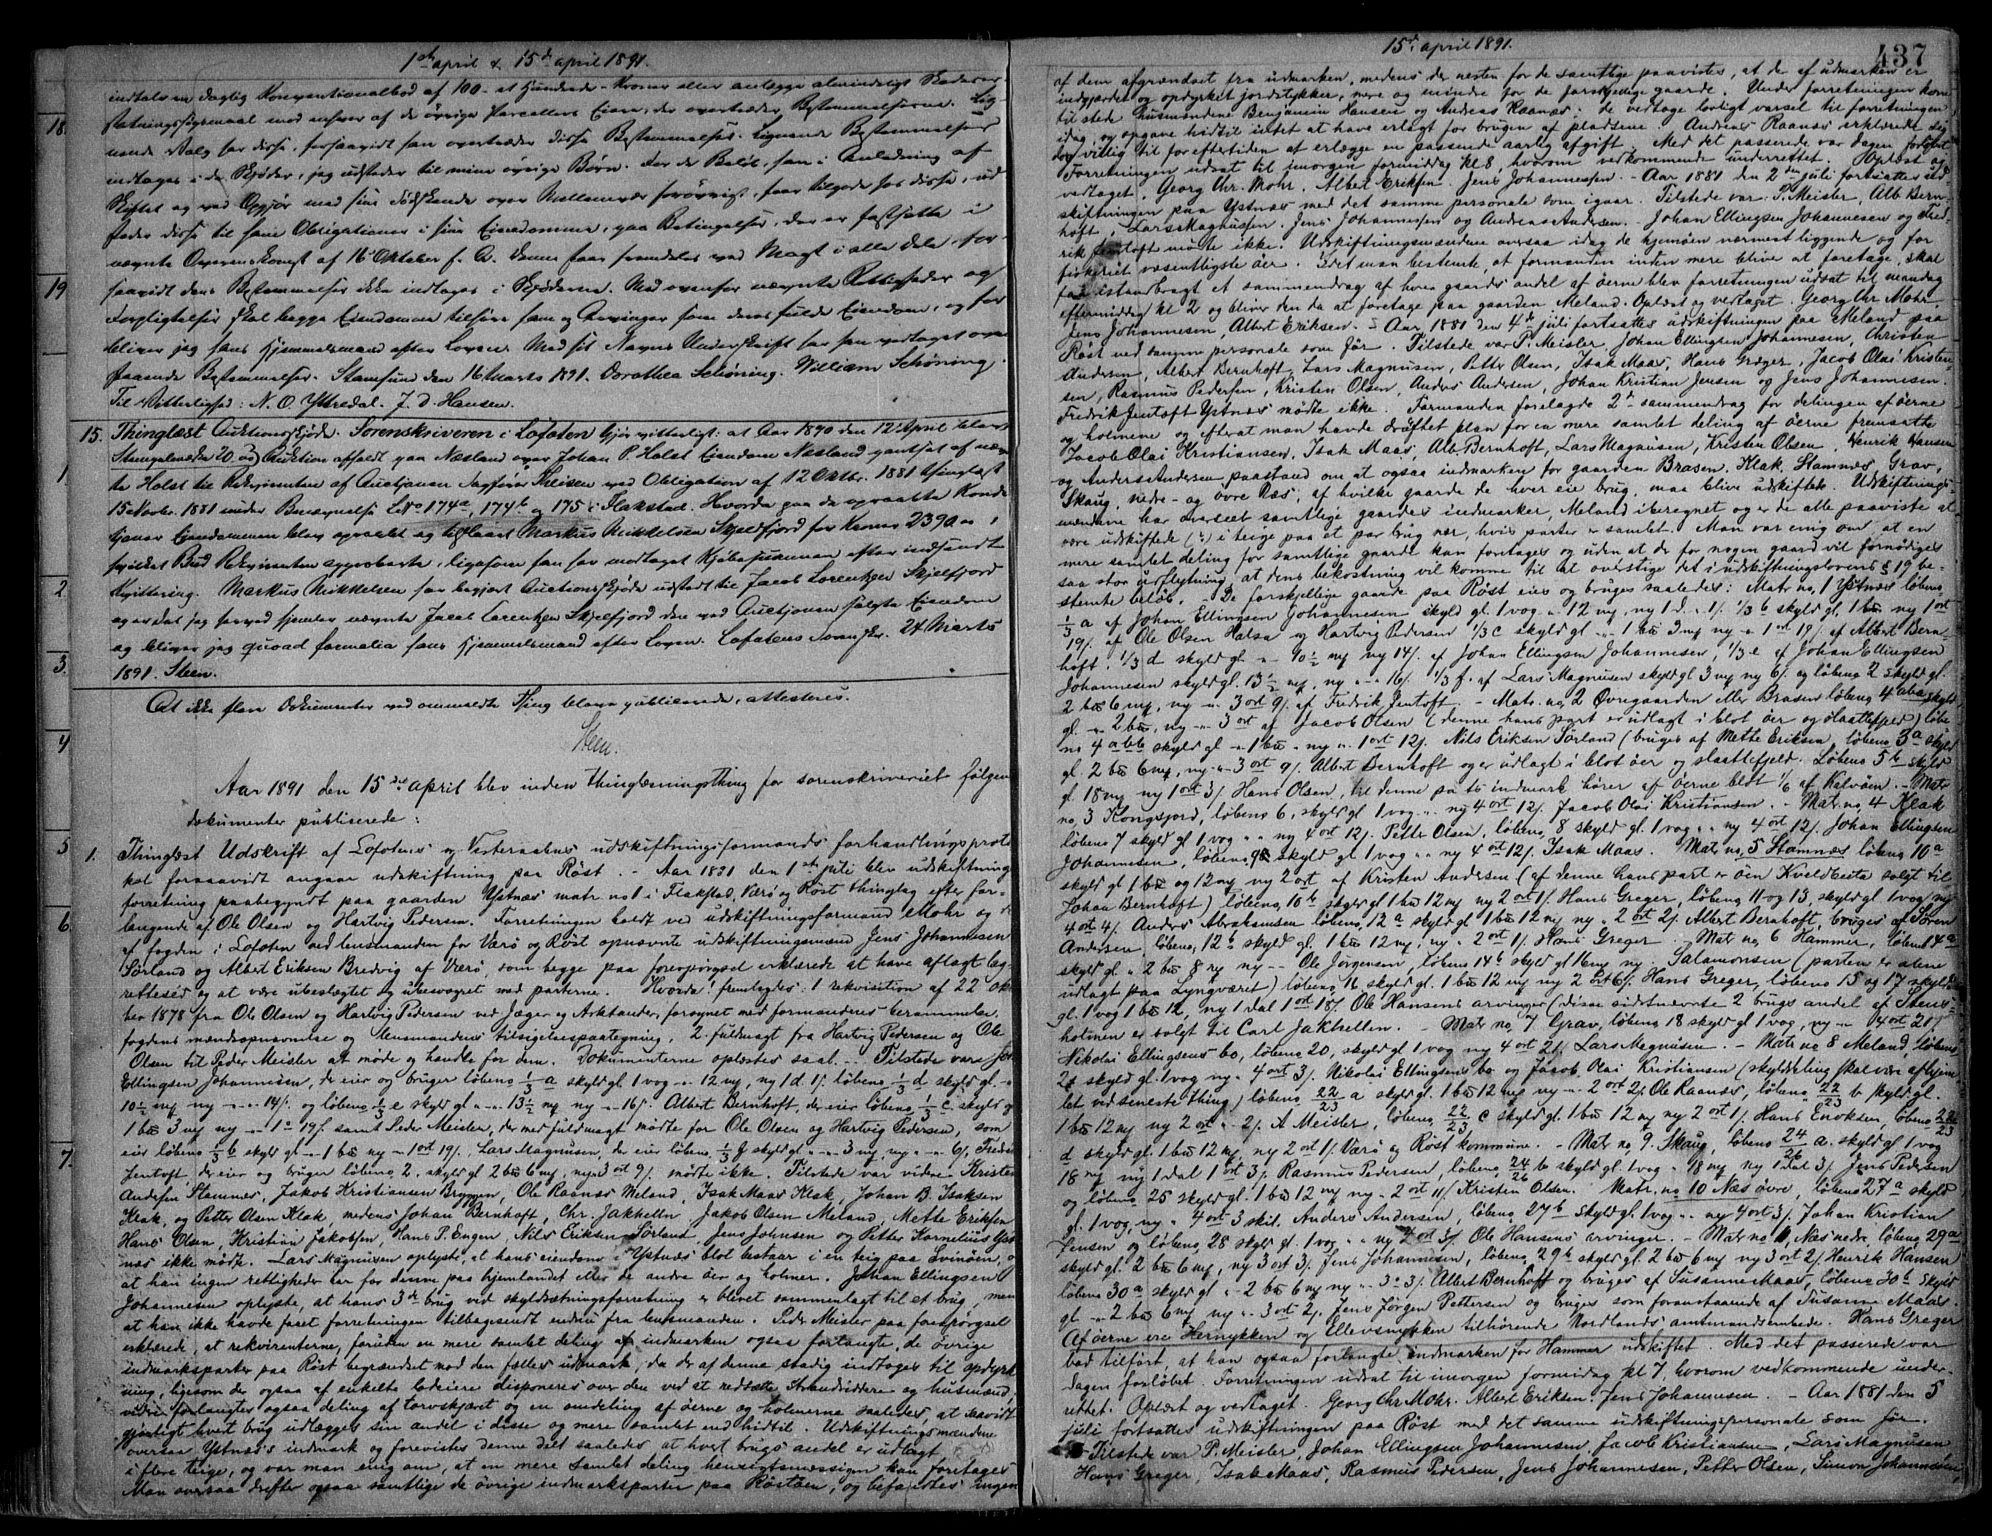 1ste april & 15de april 1891.
indtale en daglig Konventionalbod af 100 - et Hundrede - Kroner eller anlægge almindeligt Skadeser-
statningssøgsmaal mod enhver af de øvrige Parcellers Eiere, der overtræder Bestemmelserne. Lig-
nende Valg har disse, forsaavidt han overtræder disse Bestemmelser. Lignende Bestemmelser
indtages i de Skjøder, jeg udsteder til mine øvrige Børn. For de Beløb, som i Anledning af
Skiftet og ved Opgjør med sine Sødskende over Mellemvær forøvrigt, faar tilgode hos disse, ud-
steder disse til ham Obligationer i sine Eiendomme, paa Betingelser, der er fastsatte i
nævnte Overenskomst af 16 Oktober f. A. Denne faar fremdeles ved Magt i alle Dele, for-
saavidt dens Bestemmelser ikke indtages i Skjøderne. Med ovenfor nævnte Rettigheder og
Forpligtelser skal begge Eiendomme tilhøre ham og Arvinger som deres fulde Eiendom, og for
bliver jeg hans Hjemmelsmand efter Loven. Med sit Navns Underskrift har han vedtaget oven-
staaende Bestemmelser. Stamsund den 16 Marts 1891. Dorothea Schøning. William Schøning.
Til Vitterlighed: N. O. Yttredal. J. D. Hansen.
15. Thinglæst Auktionsskjøde. Sorenskriveren i Lofoten Gjør vitterligt: at Aar 1890 den 12 April blev
Auktion afholdt paa Næsland over Johan P. Holst Eiendom Næsland pantsat af næv
te Holst til Rekvirenten af Auctjonen Sagfører Theisen ved Obligation af 12 Oktbr. 1881 thinglæst
15 Novbr. 1881 under Benævnelse LNo 174a, 174b og 175 i Flakstad. Hvorda paa de opraabte Kondi
tjoner Eiendommen blev opraabt og tilslaaet Markus Mikkelsen Skjelfjord for kroner 2390
hvilket Bud Rekvirenten approberte, ligesom han har modtaget Kjøbesummen efter indsendt
Kvittering. Markus Mikkelsen har begjert Auctionsskjøde udstedt til Jacob Lorentzen Skjelfjord
og er det jeg herved hjemler nævnte Jacob Lorentzen Skjelfjord den ved Auctjonen solgte Eiendom
og bliver jeg quoad formalia hans Hjemmelsmand efter Loven. Lofotens Sorenskr. 24 Marts
1891. Steen.
At ikke flere Dokumenter ved ommeldte Thing bleve publicerede, attesteres.
Steen.
Aar 1891 den 15de April blev inden Thinglæsningsthing for sorenskriveriet følgen
dokumenter publiserede:
1. Thinglæst Udskrift af Lofotens og Vesteraalens udskiftningsformands forhandlingsproto
kol forsaavidt angaar udskiftning paa Røst. - Aar 1881 den 1ste juli blev udskiftnings
forretning paabegyndt paa gaarden Ystnæs matr. no 1 i Flakstad, Værø og Røst thinglag efter for-
langende af Ole Olsen og Hartvig Pedersen. Forretningen holdt ved udskiftningsformand Mohr og de
af fogden i Lofoten ved lensmanden for Værø og Røst opnævnte udskiftningsmænd Jens Johannesen
Sørland og Albert Eriksen Bredvig af Værø, som begge paa forespørgsel erklærede at have aflagt lag-
rettesed og at være ubeslægtet og ubesvogret med parterne. Hvorda fremlagdes: 1 rekvisition af 22 ok
ber 1878 fra Ole Olsen og Hartvig Pedersen ved Jager og Arktander, forsynet med formandens berammelse.
fogdens mændsopnævnelse og lensmandens tilsigelsespaategning, 2. fuldmagt fra Hartvig Pedersen og Ole
Olsen til Peder Meisler at møde og handle for dem. Dokumenterne oplæstes saal... - Tilstede vare Joh
Ellingsen Johannesen, der eier og bruger løbeno 1/3 a skyld gl. 1 vog - 12 mk, ny 1 d 1 /. løbeno 1/3 d skyld gl. -
10 1/2 mk ny - - 14/. og løbeno 1/3 e skyld gl - - 13 1/2 mk ny - - 16/. Albert Bernhoft, der eier løbeno 1/3 c skyld gl
1 bd 3 mk ny - 1 o 19/. samt Peder Meisler, der med fuldmagt mødte for Ole Olsen og Hartvig Pedersen, som
eier løbeno 1/3 b skyld gl - 1 bd ny - 1 ort 19/., Lars Magnusen, der eier løbeno 1/3 f skyld gl - - 3 mk ny - - 6/, Fredrik
Jentoft, der eier og bruger løbeno 2. skyld gl 2 bd 6 mk, ny 3 ort 9/. mødte ikke. Tilstede var videre Kristen
Andersen Stamnes, Jakob Kristiansen Bryggen, Ole Raanes Meland, Isak Maas Klak, Johan B. Isaksen
Klak, og Petter Olsen Klak, medens Johan Bernhoft, Chr. Jakhelln, Jakob Olsen Meland, Mette Eriksen
Hans Olsen, Kristian Jakobsen, Hans P. Engen, Nils Eriksen Sørland, Jens Johnsen og Petter Kornelius Yst
næs ikke mødte. Lars Magnusen oplyste, at hans eiendom i Ystnæs blot bestaar i en teig paa Svinøen, o
at han ingen rettigheder har for denne paa hjemlandet eller de andre øer og holmer. Johan Ellingsen
Johannesen oplyste, at hans 3de brug ved skyldsætningsforretning er blevet sammenlagt til et brug, men
at han ikke havde faaet forretningen tilbagesendt endnu fra lensmanden. Peder Meisler paa forespørgsel
erklærede, at rekvirenterne, foruden en mere samlet deling af indmarken ogsaa forlangte, de øvrige
indmarksparter paa Røst begrændset mod den fælles udmark, da der af denne stadig indtages til opdyrk
ning, ligesom der ogsaa af enkelte lodeiere disponeres over den ved at nedsætte Strandsiddere og husmænd,
videre forlangtes ogsaa deling af torvskjæret og en omdeling af øerne og holmerne saaledes, at saavidt
gjørligt hvert brug udlægges sin andel i disse og mere samlet end hidtil. Udskiftningsmændene
oversaa Ystnæs's indmark og forevistes denne delt saaledes, at hvert brugs andel er udlagt
i flere teige, og var man enig om, at en mere samlet deling hensigtsmæssigen kan foretages
Man oversaa derefter ogsaa samtlige de øvrige indmarksparter paa Røstøen, og befandtes ingen
15de april 1891.
437
af dem afgrændset fra udmarken, medens der næsten for de samtlige paavistes, at de af udmarken er
indgjærdet og opdyrket jordstykker, mere og mindre for de forskjellige gaarde. Under forretningen kom
tilstede husmændene Benjamin Hansen og Andreas Raanæs. de vedtoge lovligt varsel til forretningen
idag, og opgave hidtil intet at have erlagt for brugen af pladsene. Andreas Raanæs erklærede sig
dog villig til for eftertiden at erlægge en passende aarlig afgift. Med det passerede var dagen forløbet
Forretningen udsat til imorgen formiddag kl 8, hvorom vedkommende underrettet. Oplæst og
vedtaget. Georg Chr. Mohr. Albert Eriksen. Jens Johannesen. - Aar 1881 den 2den juli fortsattes ud-
skiftningen paa Ystnæs med det samme personale som igaar. Tilstede var P. Meisler, Alb Bern-
hoft, Lars Magnusen. Jens Johannesen og Andreas Andersen. Johan Ellingsen Johannesen og Fred-
rik Jentoft mødte ikke. Udskiftningsmændene oversaa idag de hjemøen nærmest liggende og for
fiskeriet væsentligste øer. Idet man bestemte, at formanden inden mere blive at foretage, skal
faa istandbragt et sammendrag af hver gaards andel af øerne blev forretningen udsat til mandag
eftermiddag kl 2 og bliver den da at foretage paa gaarden Meland. Oplæst og vedtaget. Georg Chr. Mohr.
Jens Johannesen, Albert Eriksen. - Aar 1881 den 4de juli fortsattes udskiftningen paa Meland paa
Røst ved samme personale som før. Tilstede var P. Meisler, Johan Ellingsen Johannesen, Christen
Andersen, Albert Bernhoft, Lars Magnusen, Petter Olsen, Isak Maas, Hans Greger, Jacob Olai Kristen-
sen, Rasmus Pedersen, Kristen Olsen, Anders Andersen, Johan Kristian Jensen og Jens Johannesen.
Fredrik Jentoft Ystnæs mødte ikke. Formanden forelagde 2de sammendrag for delingen af øerne
og holmene og efterat man havde drøftet plan for en mere samlet deling af øerne fremsatte
Jacob Olai Kristiansen, Isak Maas, Alb. Bernhoft, Lars Magnusen, Kristen Olsen, Henrik Hansen
og Anders Andersen paastand om at ogsaa indmarken for gaarden Brasen, Klak, Stamnæs, Grav,
Skaug, nedre- og øvre Næs, af hvilke gaarde de hver eie brug, maa blive udskiftet. Udskiftnings-
mændene har overseet samtlige gaardes indmarker, Meland iberegnet og er de alle paaviste at
være udskiftede i teige paa et par brug nær, hvis parter er samlet. Man var enig om, at en
mere samlet deling for samtlige gaarde kan foretages og uden at der for nogen gaard vil fornødiges
saa stor udflytning, at dens bekostning vil komme til at overstige det i udskiftningslovens § 19 be-
stemte beløb. - De forskjellige gaarde paa Røst eies og bruges saaledes: Matr. no, 1 Ystnæs løbeno
1/3 a af Johan Ellingsen Johannesen skyld gl. 1 vog - 12 mk, ny 1 d. - 1/. 1/3 b skyld gl. 1 bd ny 1 ort
19/. af Ole Olsen Halsa og Hartvig Pedersen 1/3 c skyld gl - 1 bd 3 mk ny - 1 ort 19/. af Albert Bern-
hoft. 1/3 d skyld gl. - - 10 1/2 mk ny 14/. af Johan Ellingsen Johannesen, 1/3 e af Johan Ellingsen
Johannesen skyld gl. 13 1/2 mk, ny - - 16/. 1/3 f. af Lars Magnusen skyld gl 3 mk ny 6/. og løbeno 2 skyld gl.
2 bd 6 mk, ny - 3 ort 9/. af Fredrik Jentoft. - Matr. no, 2 Øvregaarden eller Brasen løbeno 4 aba skyld
gl. - 2 bd, ny - 3 ort af Jacob Olsen (denne hans part er udlagt i blot øer og slaattefjeld) løbe
no 4 abb skyld gl - 1 bd - ny - 1 ort 12/. Nils Eriksen Sørland (bruges af Mette Eriksen, løbeno 3a skyld
gl. 2 bd 6 mk, ny - 3 ort 9/. Albert Bernhoft og er udlagt i blot øer og slaattefjeld. Løbeno 5b skyld
gl. 18 mk ny 1 ort 3/. Hans Olsen, til denne pa ts indmark hører af øerne blot 1/6 af Kalvøen. - Matr
no, 3 Kongsjord, løbeno 6, skyld gl. 1 vog - - ny 4 ort 12/. Jacob Olai Kristiansen. - Matr. no, 4 Klak
løbeno 7 skyld gl 1 vog - - ny 4 ort 12/. Petter Olsen, løbeno 8 skyld gl. 1 vog - - ny 4 ort 12/. Johan Ellingsen
Johannesen, løbeno 9 skyld gl 1 vog - - ny 4 ort 12/. Isak Maas. Matr no, 5 Stamnæs løbeno 10 a
skyld gl 1 bd og 12 mk ny 2 ort af Kristen Andersen (af denne hans part er øen Kveldbeita solgt til
Johan Bernhoft) løbeno, 10 b skyld gl 1 bd 12 mk ny 2 ort 1/. Hans Greger, løbeno 11 og 13, skyld gl 1 vog ny
4 ort 4/. Anders Abrahamsen løbeno, 12 a skyld gl 1 bd 12 mk ny - 2 ort 2/. Albert Bernhoft, bruges af Søren
Andersen, løbeno, 12 b skyld gl. 1 bd 12 mk, ny - 2 ort 1/. Hans Greger - Matr no, 6 Hammer, løbeno 14 a
skyld gl. - 2 bd 8 ny ny - - Ole Jørgensen, løbeno 14 b skyld gl 16 mk ny. Salamonsen (parten er alene
udlagt paa Lyngværet) løbeno 16 skyld gl. 1 bd 12 mk ny 2 ort 6/. Hans Greger, løbeno 15 og 17 skyld
gl. 1 vog 1 bd 12, ny 1 dal 1 ort 18/. Ole Hansens arvinger (disse sidstnævnte 2 brugs andel af Stens-
holmen er solgt til Carl Jakhellen. - Matr no, 7 Grav, løbeno 18 skyld gl 1 vog, ny - 4 ort 21/
Nikolai Ellingsens bo, løbeno 20, skyld gl. 1 vog ny 4 ort 2/. Lars Magnusen. - Matr no 8 Meland, løbeno
21 skyld gl. 1 vog ny - 4 ort 3/. Nikolai Ellingsens bo og Jacob Olai Kristiansen (skylddeling skal være afhjem
let ved seneste thing) løbeno 22/23 a skyld gl. 1 bd 12 mk ny - 2 ort 2/. Ole Raanæs, løbeno 22/23 b skyld gl.
1 bd 12 mk ny 2 ort - 2/. A Meisler, løbeno 22/23 c skyld gl. 1 bd 12 mk ny 2 ort 1/. Hans Enoksen, løbeno 22/23
d skyld gl. 1 bd 12 mk, ny 2 ort 1/. Værø og Røst kommune. - Matr no, 9. Skaug, løbeno 24/26 a. skyld gl 1 vog
18 mk ny 1 dal 1 ort 3/. Rasmus Pedersen, løbeno 24/26 b skyld gl. 1 vog - 18 mk ny 1 dal 3/. Jens Pedersen
og løbeno 25 skyld gl. 1 bd 12 mk ny - 2 ort 11/. Kristen Olsen. Matr. no 10 Næs øvre, løbeno 27 a skyld
gl. 1 vog, ny - 4 ort 3 skil. Anders Andersen, løbeno 27 b skyld gl. 1 vog - - ny 4 ort 3/. Johan Kristian
Jensen og løbeno 28 skyld gl. 1 vog - - ny 2 ort 3/ Ole Hansens arvinger. - Matr no 11, Næs nedre, løbeno 29 a
skyld gl. 2 bd 6 mk, ny 3 ort 3/. Jens Johannesen, løbeno 29 b skyld gl. 2 bd 6 mk ny 3 ort 2/. Henrik Hansen
løbeno 30 a skyld gl - 2 bd 6 mk ny - 3 o 3/. Albert Bernhoft og bruges af Susanne Maas, løbeno 30 b skyld
gl - 2 bd 6 mk ny - 3 ort 2/. Jens Jørgen Pettersen og bruges som foranstaaende af Susanne Maas.
Af øerne ere Hernykken og Ellevsnykken tilhørende Nordlands amtmandsembede. Hans Greger
bad tilført, at han ogsaa forlangte indmarken for Hammer udskiftet. Med det passerede var
dagen forløbet. Forretningen udsat til imorgen formidag kl 7, hvorom vedkommende under-
rettet. Oplæst og vedtaget. Georg Chr. Mohr. Albert Eriksen. Jens Johannesen. - Aar 1881 den 5
juli fortsattes udskiftningen paa Røst med det samme udskiftningspersonale som før.
Tilstede var P. Meisler, Johan Ellingsen Johannesen, Jacob Kristiansen, Lars Magnusen
Hans Greger, Isak Maas, Rasmus Pedersen, Jens Johannesen, Petter Olsen, Simon Johannesen